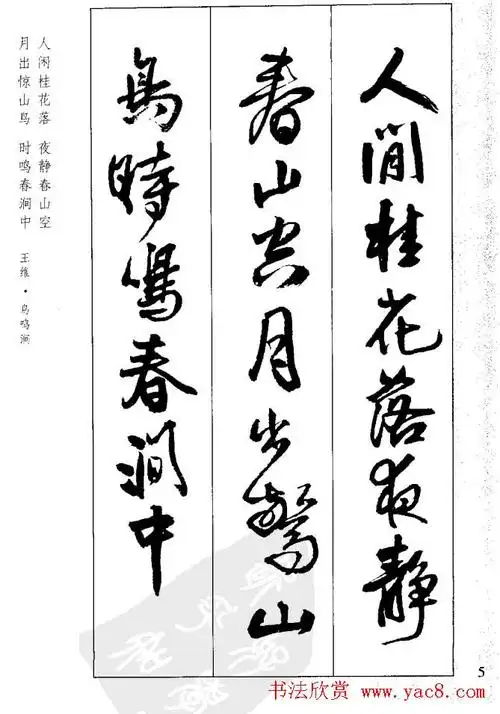 人閒桂花落夜靜
春山空月出驚山
鳥時鳴春澗中
人闲桂花落 夜静春山空
月出惊山鸟 时鸣春涧中 王维·鸟鸣涧
5
书法欣赏 www.yac8.com